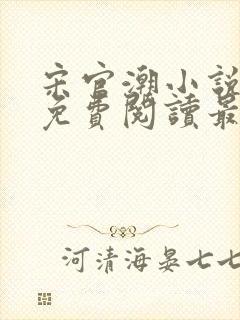 宋官潮小說
免費閱讀最
河清海晏七七